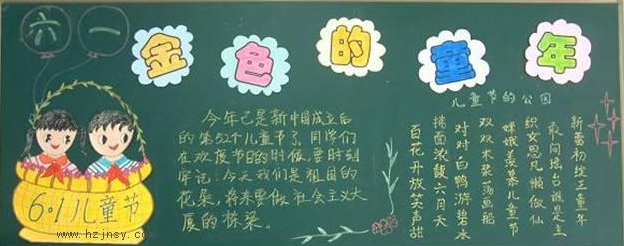 六一
金色的童年
今年已是新中国成立后
的第52个儿童节了,同学们
在欢度节日的时候,要时刻
牢记:今天我们是祖国的
花朵,将来要做社会主义大
厦的栋梁。
儿童节的公园
百花开放笑声甜
面浓馥六月天
对对白鸭游碧水
双双木桨荡画船
嫦娥羡慕儿童节
织女思凡懒做仙
敢问瑶台谁是主
新蕾初绽正童年
6·1儿童节
www.hzjnsy.com